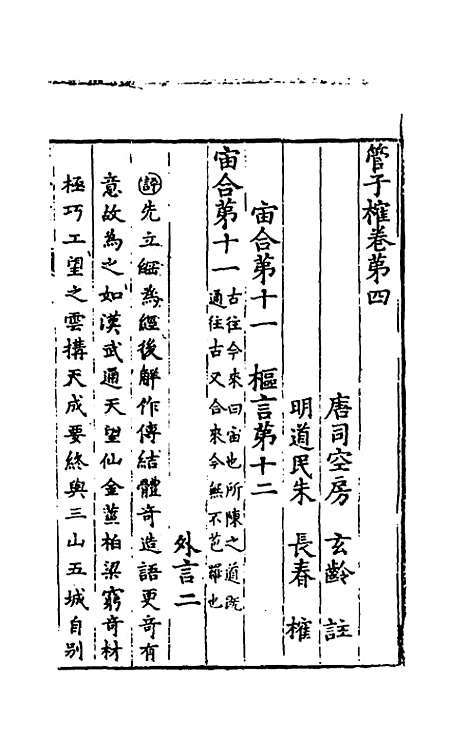 管子榷卷第四
唐司空房　玄齡　註
明道民朱　長春　榷
宙合第十一　樞言第十二
宙合第十一　古往今來曰宙也所陳之道既
通往古又合來今無不苞羅也
外言二
評先立綱為經後解作傳結體奇造語更奇有
意故為之如漢武通天望仙金莖柏梁窮奇材
極巧工望之雲搆天成要終與三山五城自別